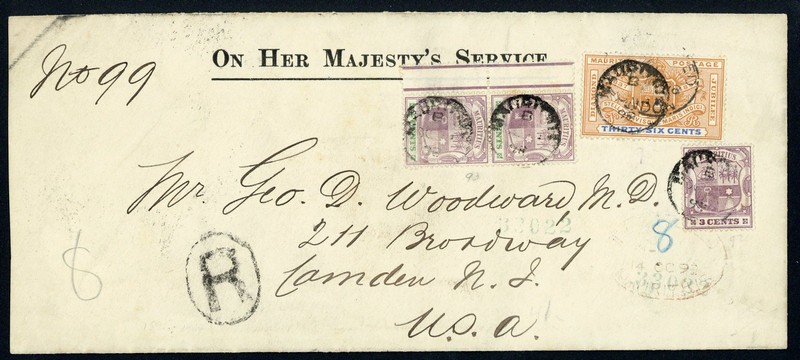 No 99
ON HER MAJESTY'S SERVICE
MAURITIUS POSTAGE
THIRTY SIX CENTS
MAURITIUS
MAURITIUS
MAURITIUS
3 CENTS
93
Mr. Geo. D. Woodward M.D.
32022
211 Broadway
8
Camden N. J.
U.S.A.
R
8